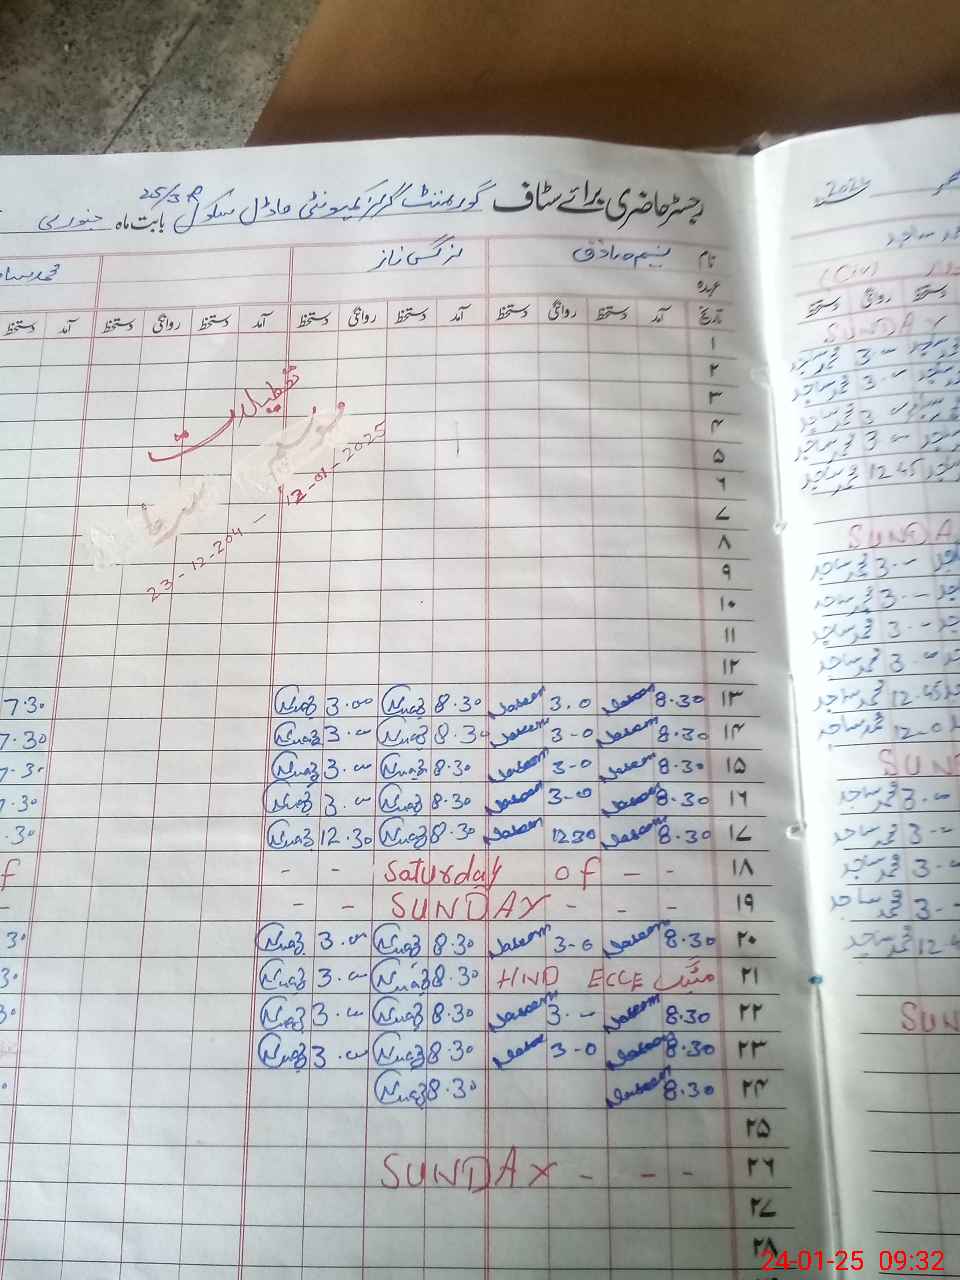 رجسٹر حاضری برائے سٹاف گورنمنٹ گرلز کمیونٹی ماڈل سکول 25/3R بابت ماہ جنوری
نام نسیم صادق نرگس ناز
عہدہ
تاریخ آمد دستخط روانگی دستخط آمد دستخط روانگی دستخط آمد دستخط روانگی دستخط آمد دستخط
۱
۲
۳
۴
۵
۶
۷
۸
۹
۱۰
۱۱
۱۲
تعطیلات
موسم سرما
23-12-204 - 12-01-2025
۱۳ 8.30 Naseem 3.0 Naseem 8.30 Nuaz 3.00 Nuaz 7.30
۱۴ 8.30 Naseem 3-0 Naseem 8.30 Nuaz 3.00 Nuaz 7.30
۱۵ 8.30 Naseem 3-0 Naseem 8.30 Nuaz 3.00 Nuaz 7.30
۱۶ 8.30 Naseem 3-0 Naseem 8.30 Nuaz 3.00 Nuaz 7.30
۱۷ 8.30 Naseem 1230 Naseem 8.30 Nuaz 12.30 Nuaz .30
۱۸ - - Saturday of - -
۱۹ - - SUNDAY - - -
۲۰ 8.30 Naseem 3-0 Naseem 8.30 Nuaz 3.00 Nuaz 30
۲۱ میٹنگ ECCE HND 8.30 Nuaz 3.00 Nuaz 30
۲۲ 8.30 Naseem 3.- Naseem 8.30 Nuaz 3.00 Nuaz 30
۲۳ 8.30 Naseem 3-0 Naseem 8.30 Nuaz 3.00 Nuaz
۲۴ 8.30 Naseem 8.30 Nuaz
۲۵
۲۶ SUNDAY - - -
۲۷
۲۸
2024
دستخط روانگی دستخط
SUNDAY
محمد ساجد 3.00
محمد ساجد 3.00
محمد ساجد 3.00
محمد ساجد 3.00
محمد ساجد 12.45
SUNDA
محمد ساجد 3.00
محمد ساجد 3.00
محمد ساجد 3.00
محمد ساجد 3.00
محمد ساجد 12.45
محمد ساجد 12.0
SUN
محمد ساجد 3.00
محمد ساجد 3.-
محمد ساجد 3.-
محمد ساجد 3.-
محمد ساجد 12.4
SUN
24-01-25 09:32